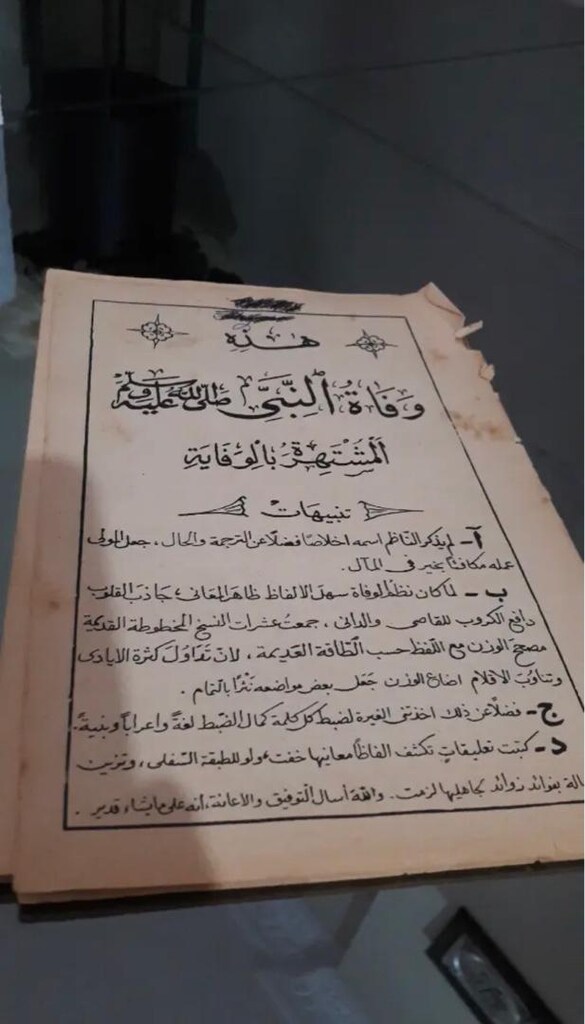 هذه
وَفَاةُ ٱلنَّبِيِّ صَلَّى اللّٰهُ عَلَيْهِ وَسَلَّمْ
اَلْمُشْتَهِرَةُ بِالْوِفَايَةِ
تنبيهات
آ - لم يذكر الناظم اسمه اخلاصا فضلًا عن الترجمة والحال ، جعل المولى
عمله مكافئًا بخير فى المآل .
ب - لما كان نظمُ الوفاة سهلَ الألفاظ ظاهرَ المعانى ، جاذبَ القلوب
دافعَ الكروب للقاصى والدانى ، جمعتُ عشرات النسخ المخطوطة القديمة
مصححَ الوزن مع اللفظ حسب الطاقة العديمة ، لانّ تداوُلَ كثرة الايادى
وتناوُبَ الاقلام اضاعَ الوزن جَعَل بعض مواضعه نَثْرًا بالتمام .
ج - فضلًا عن ذلك اخذتنى الغيرة لضبط كل كلمة كمال الضبط لغةً واعرابًا وبنيةً .
د - كتبت تعليقاتٍ تكشف الفاظًا معانيها خفت ولو للطبقة السفلى ، وتزين
بفوائد زوائد بجاهليها لزمت . والله أسأل التوفيق والاعانة ، انه على ما يشاء قدير .